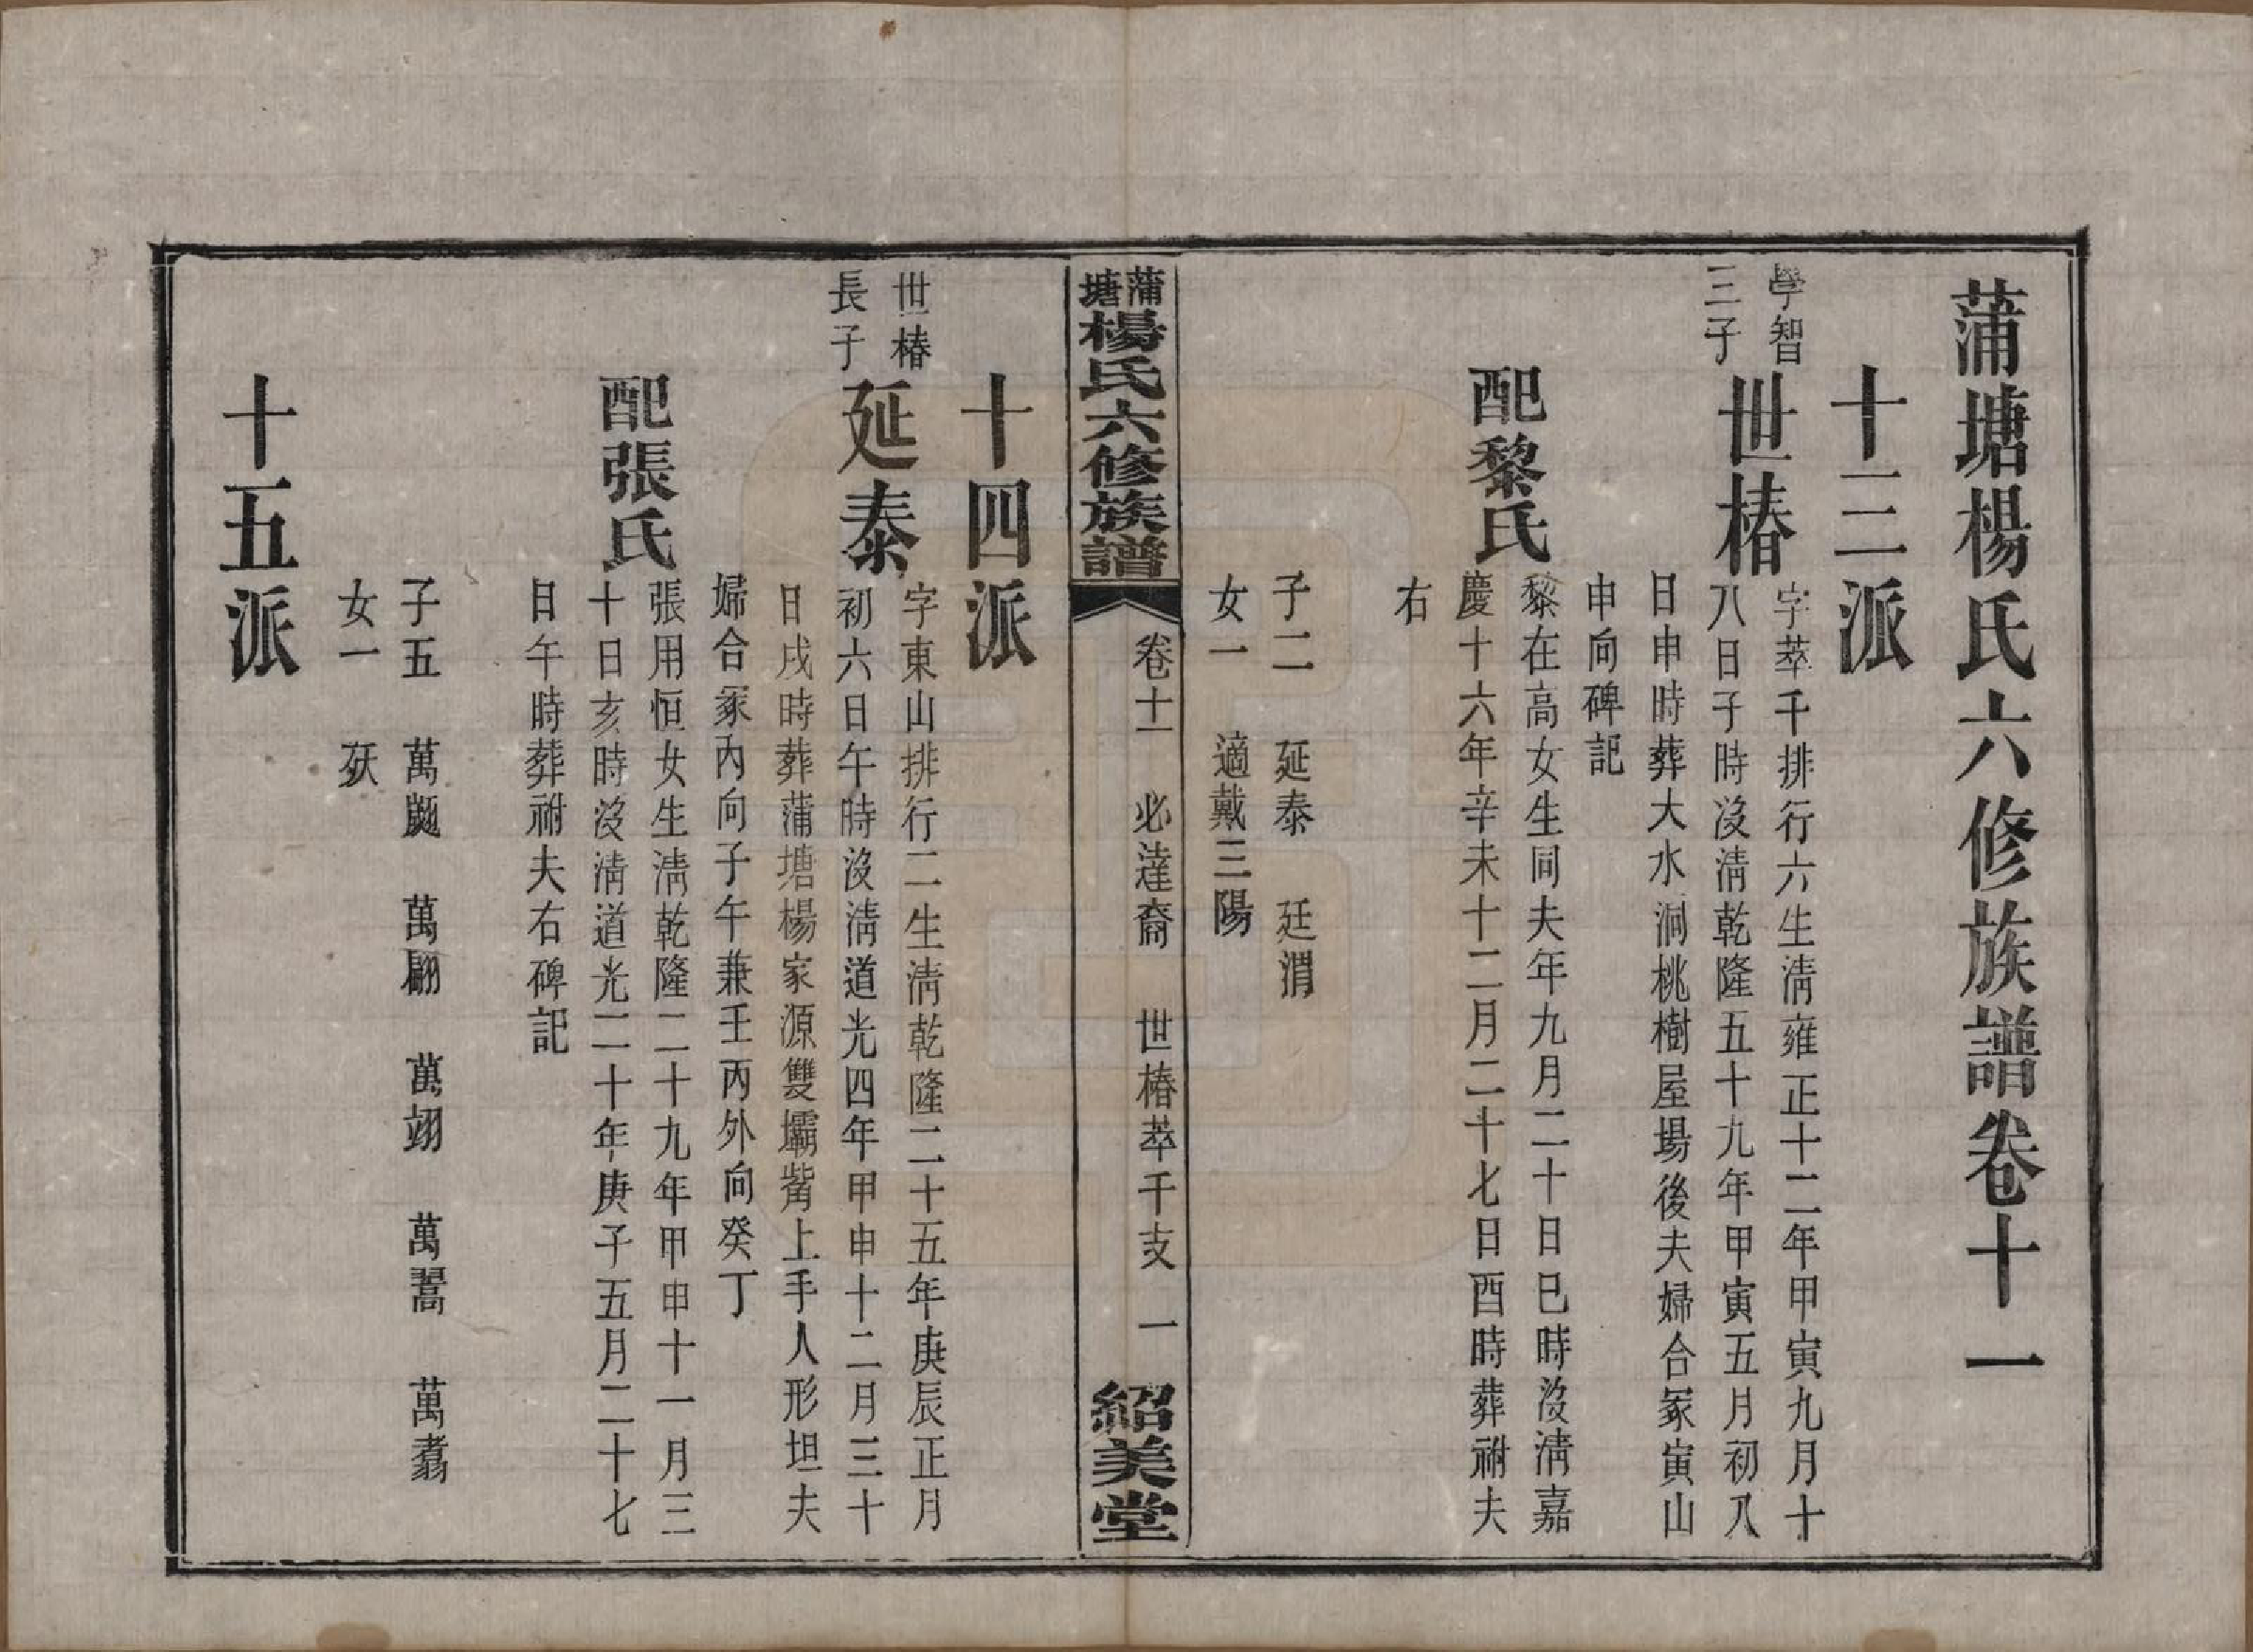 蒲塘楊氏六修族譜卷十一
十三派
學智
三子
世椿
字萃千排行六生淸雍正十二年甲寅九月十
八日子時沒淸乾隆五十九年甲寅五月初八
日申時葬大水洞桃樹屋場後夫婦合冢寅山
申向碑記
配黎氏
黎在高女生同夫年九月二十日巳時沒淸嘉
慶十六年辛未十二月二十七日酉時葬祔夫
右
子二 延泰 廷渭
女一 適戴三陽
蒲塘楊氏六修族譜 卷十一 必達裔 世椿萃千支 一 紹美堂
十四派
世椿
長子
延泰
字東山排行二生淸乾隆二十五年庚辰正月
初六日午時沒淸道光四年甲申十二月三十
日戌時葬蒲塘楊家源雙壩嘴上手人形坦夫
婦合冢內向子午兼壬丙外向癸丁
配張氏
張用恒女生淸乾隆二十九年甲申十一月三
十日亥時沒淸道光二十年庚子五月二十七
日午時葬祔夫右碑記
子五 萬 萬翮 萬翊 萬翯 萬翥
女一 殀
十五派